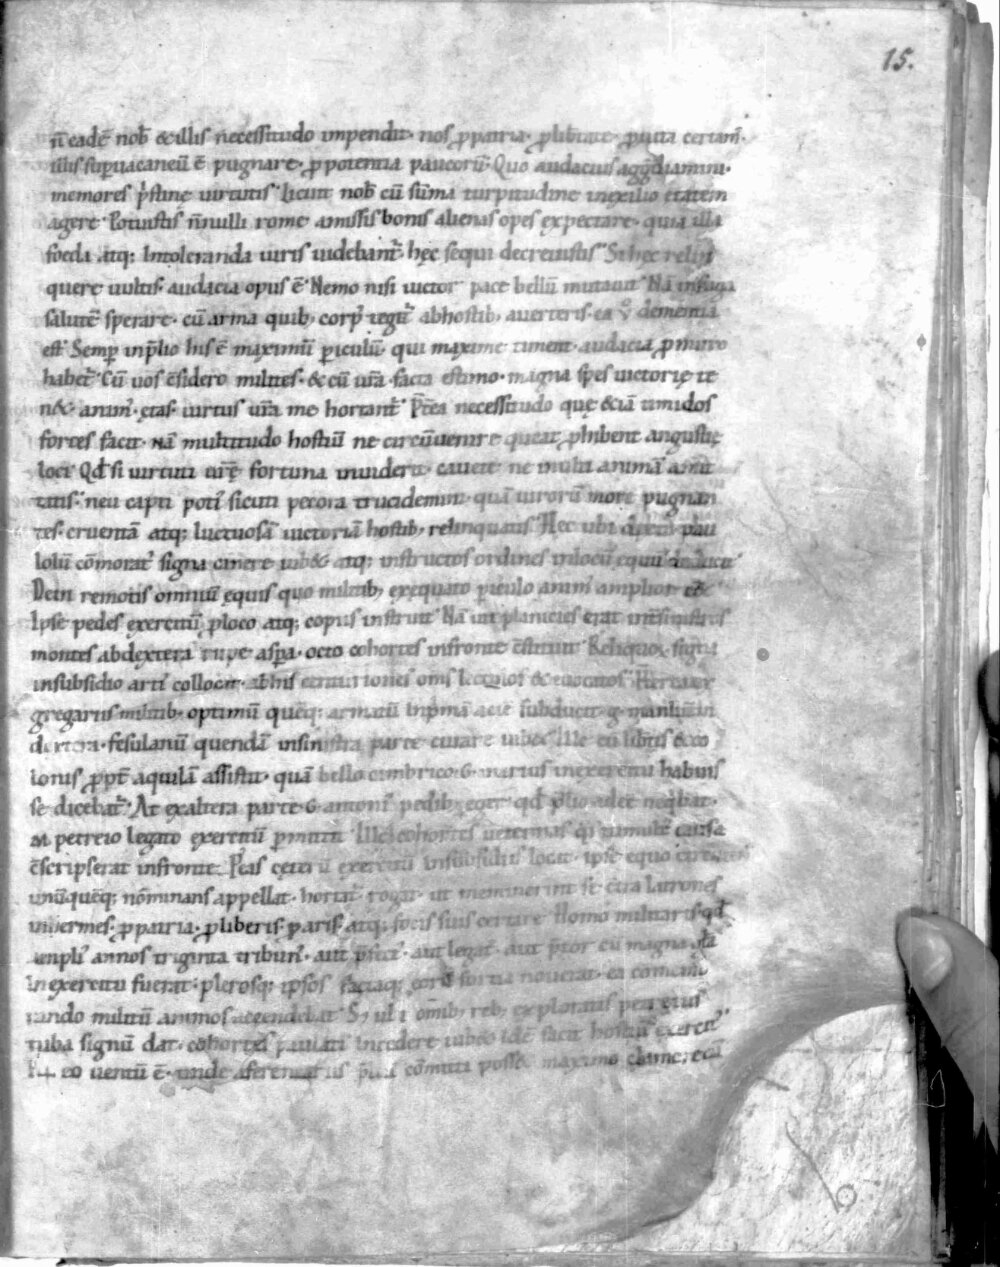 15.
n̄ eadē nob̄ & illis necessitudo impendit· nos ꝓ patria· ꝓ lib̄tate· ꝓ uita certam̄·
illis suꝑuacaneū ē pugnare· ꝓ potentia paucoꝝ· Quo audacius aggrediamini·
memores p̄stinę uirtutis· Licuit nob̄ cū sūma turpitudine in exilio etatem
agere· Potuistis n̄nulli rome amissis bonis alienas opes expectare· quia illa
foeda atq; intoleranda uiris uidebant᷑· hęc sequi decreuistis· Si hęc relin
quere uultis· audacia opus ē· Nemo nisi uictor pace bellū mutauit· Nā in fuga
salutē sperare· cū arma quib; corp᷑ tegit᷑ ab hostib; auerteris· ea ů dementia
est· Semꝑ in p̄lio his ē maximū ꝑiculū· qui maxime timent· audacia ꝓ muro
habet᷑· Cū uos c̄sidero milites· & cū ur̄a facta estimo· magna spes uictorię te
n&· anim᷑· etas· uirtus ur̄a me hortant᷑· Pr̄ea necessitudo quę &iā timidos
fortes facit· Nā multitudo hostiū ne circūuenire queat ꝓhibent angustię
loci· Qđ si uirtuti ur̄ę fortuna inuiderit· cauete ne inulti animā amit
tatis· neu capti poti᷑ sicuti pecora trucidemini· quā uiroꝝ more pugnan
tes· cruentā atq; luctuosā uictoriā hostib; relinquatis· Hec ubi dixit pau
lolū cōmorat᷑ signa canere iub& atq; instructos ordines in locū equū deducit·
Dein remotis omniū equis quo militib; exęquato ꝑiculo anim᷑ amplior eē&
Ipse pedes exercitū ꝓ loco atq; copiis instruit· Nā uti planicies erat int̄ sinistros
montes ab dextera rupe aspa· octo cohortes in fronte c̄stituit· Reliquoꝝ signa
in subsidio arti᷑ collocat· ab his centuriones om̄s lectos & euocatos·
gregariis militib; optimū quēq; armatū in p̄mā acię subducit· G· manliū in
dextera· fesulanū quendā in sinistra parte curare iubet· Ille cū lib̄tis & co
lonis ꝓpt᷑ aquilā assistit· quā bello cimbrico G· marius in exercitu habuis
se dicebat᷑· At ex altera parte G· antoni᷑ pedib; eger qđ p̄lio adeē neq̇bat·
M petreio legato exercitū ꝑmittit· Ille cohortes ueteranas q̇s tumult᷑ causa
c̄scripserat in fronte· P᷑ eas ceterū exercitū in subsidiis locat· ipse equo circuiens
unūquēq; nōminans appellat· hortat᷑ rogat ut meminerint se c̄tra latrones
inermes· ꝓ patria· ꝓ liberis ꝓ aris· atq; focis suis certare· Homo militaris qđ
ampli᷑ annos triginta tribun᷑· aut p̄fect᷑· aut legat᷑· aut p̄tor cū magna gl̄a
in exercitu fuerat· plerosq; ipsos factaq; eoꝝ fortia nouerat· ea comemo
rando militū animos accendebat· S; ubi omib; reb; exploratis petreius
tuba signū dat· cohortes paulati incedere iubet· idē facit hostiū exercit᷑·
eo uentū ē· unde a ferentariis p̄liū cōmitti poss& maximo clamore cū